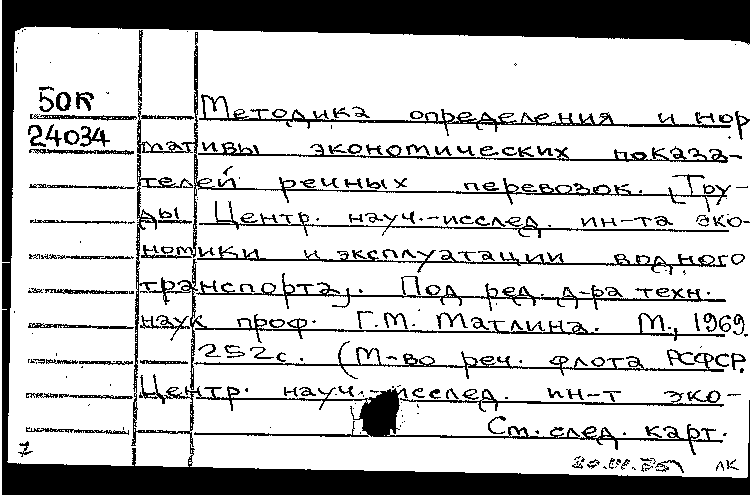 50R
24034
Методика определения и нор
мативы экономических показа-
телей речных перевозок. [Тру-
ды Центр. науч.-исслед. ин-та эко-
номики и эксплуатации водного
транспорта]. Под ред. д-ра техн.
наук проф. Г.М. Матлина. М., 1969.
252с. (М-во реч. флота РСФСР.
Центр. науч.-исслед. ин-т эко-
См. след. карт.
7
ЛК